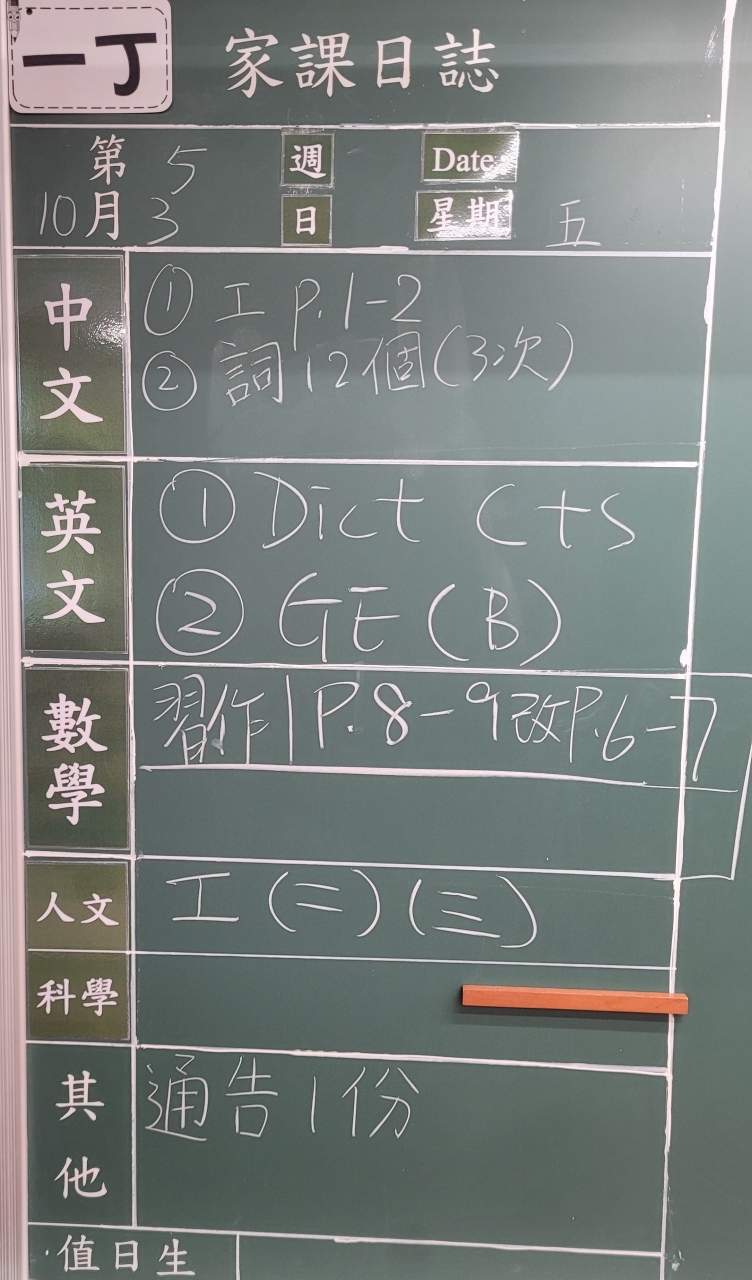 一丁 家課日誌
第 5 週 Date
10月 3 日 星期 五
中文
① 工 P.1-2
② 詞12個(3次)
英文
① Dict Cts
② GE (B)
數學
習作 | P.8-9 改P.6-7
人文
工(二)(三)
科學
其他
通告1份
值日生